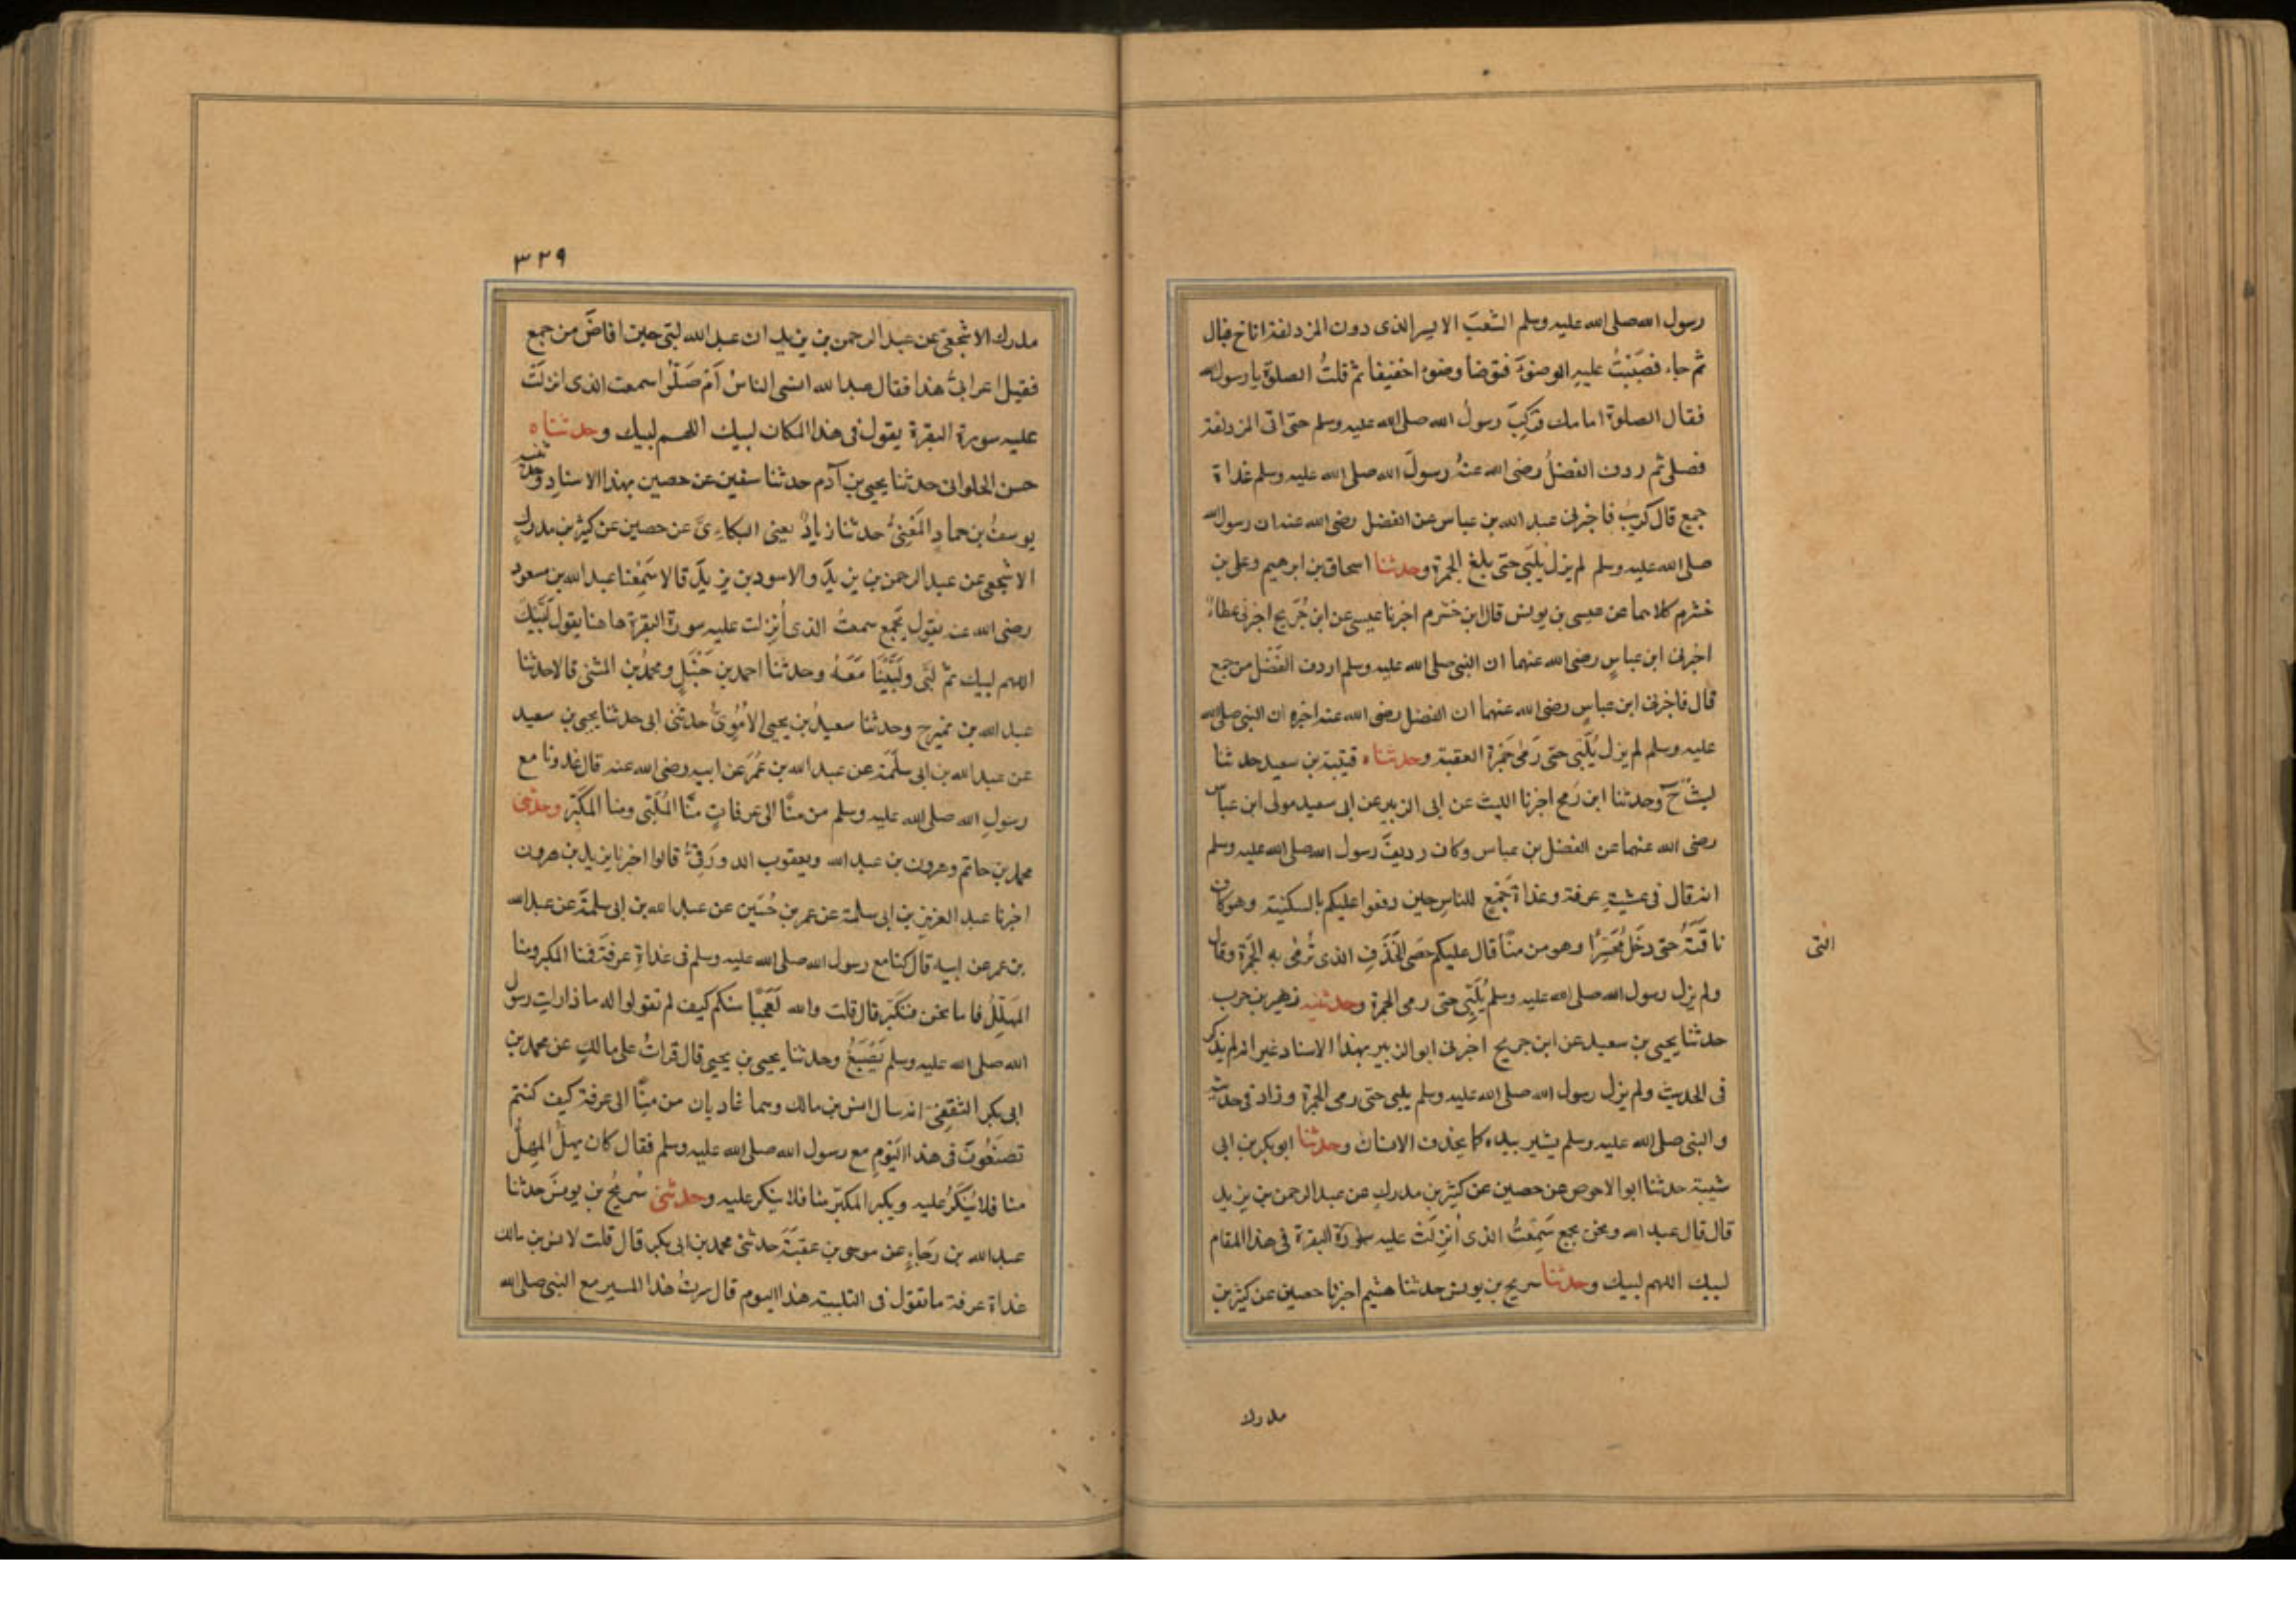 رسول الله صلى الله عليه وسلم الشعبَ الايسر الذى دون المزدلفة اناخ فبال
ثم جاء فصَبَبْتُ عليه الوضوءَ فتوضا وضوءا خفيفا ثم قلتُ الصلوةَ يا رسول الله
فقال الصلوة امامك فركِبَ رسولُ الله صلى الله عليه وسلم حتى اتى المزدلفة
فصلى ثم ردف الفضلُ رضى الله عنهُ رسولَ الله صلى الله عليه وسلم غداة
جمع قال كريبٌ فاخبرنى عبد الله بن عباس عن الفضل رضى الله عنه ان رسول الله
صلى الله عليه وسلم لم يزل يلبّى حتى بلغ الجمرة وحدثنا اسحاق بن ابرهيم وعلى بن
خشرم كلاهما عن عيسى بن يونس قال ابن خشرم اخبرنا عيسى عن ابن جُرَيج اخبرنى عطاءٌ
اخبرنى ابن عباسٍ رضى الله عنهما ان النبى صلى الله عليه وسلم اردف الفَضْل من جمع
قال فاخبرنى ابن عباسٍ رضى الله عنهما ان الفضل رضى الله عنه اخبره ان النبى صلى الله
عليه وسلم لم يزل يُلَبّى حتى رَمَى جَمْرَة العقبة وحدثناه قتيبة بن سعيد حدثنا
ليث ح وحدثنا ابن رُمح اخبرنا الليث عن ابى الزبير عن ابى سعيد مولى ابن عباس
رضى الله عنهما عن الفضل بن عباس وكان رديفَ رسول الله صلى الله عليه وسلم
انه قال فى عشيةِ عرفة وغداة جَمْعٍ للناس حين دفعوا عليكم بالسكينة وهو كاف
ناقَتَهُ حتى دخَل مُحَسِّرًا وهو من منًا قال عليكم بحَصَى الخَذَفِ الذى تُرْمَى به الجَمْرة وقال
التى
ولم يزل رسول الله صلى الله عليه وسلم يُلَبِّى حتى رمى الجمرة وحدثنيه زهير بن حرب
حدثنا يحيى بن سعيد عن ابن جريج اخبرنى ابو الزبير بهذا الاسناد غير انه لم يذكر
فى الحديث ولم يزل رسول الله صلى الله عليه وسلم يلبى حتى رمى الجمرة وزاد فى حديثه
والنبى صلى الله عليه وسلم يشير بيده كما يخذف الانسان وحدثنا ابو بكر بن ابى
شيبة حدثنا ابو الاحوص عن حصين عن كثير بن مدركٍ عن عبد الرحمن بن يزيد
قال قال عبد الله ونحن بجمع سَمِعتُ الذى اُنزِلَتْ عليه سورة البقرة فى هذا المقام
لبيك اللهم لبيك وحدثنا سريج بن يونس حدثنا هشيم اخبرنا حصين عن كثير بن
مدرك
٣٢٩
مدرك الاشجعى عن عبد الرحمن بن يزيد ان عبد الله لبّى حين افاضَ من جمع
فقيل اعرابىٌّ هذا فقال عبد الله انسى الناسُ اَمْ ضَلُّوا سمعت الذى انزلَتْ
عليه سورة البقرة يقول فى هذا المكان لبيك اللهم لبيك وحدثناه
حسن الحلوانى حدثنا يحيى بن آدم حدثنا سفين عن حصين بهذا الاسناد وحدثنيه
يوسفُ بن حمادٍ المَعْنِىُّ حدثنا زيادٌ يعنى البكاءِىَّ عن حصين عن كثير بن مدركٍ
الاشجعى عن عبد الرحمن بن يزيدَ والاسود بن يزيدَ قالا سَمِعْنا عبد الله بن مسعود
رضى الله عنه يقول بجَمع سمعتُ الذى اُنزِلت عليه سورة البقرة هاهنا يقول لَبَّيْكَ
اللهم لبيك ثمّ لَبَّى ولَبَّيْنَا مَعَهُ وحدثنا احمد بن حَنْبَلٍ ومحمدُ بن المثنى قالا حدثنا
عبد الله بن نميرح وحدثنا سعيدُ بن يحيى الاُمَوِىُّ حدثنى ابى حدثنا يحيى بن سعيد
عن عبد الله بن ابى سلَمَة عن عبد الله بن عبد الله بن عُمَرَ عن ابيه رضى الله عنه قال غدونا مع
رسولِ الله صلى الله عليه وسلم من منًّا الى عرفاتٍ منّا المُلَبّى ومنا المكَبِّر وحدثنى
محمد بن حاتم وهرون بن عبد الله ويعقوب الدورَقِىُّ قالوا اخبرنا يزيد بن هرون
اخبرنا عبد العزيز بن ابى سلمة عن عمر بن حُسَين عن عبد الله بن ابى سلمَةَ عن عبد الله
بن عمر عن ابيه قال كنا مع رسول الله صلى الله عليه وسلم فى غداةِ عرفَةَ فمنا المكبر ومنا
المهَلِّلُ فاما نحن فنكَبِّر قال قلت والله لَعَجَبًا منكم كيف لم تقولوا له ماذا رايت رسول
الله صلى الله عليه وسلم يَصْنَعُ وحدثنا يحيى بن يحيى قال قراتُ على مالكٍ عن محمد بن
ابى بكر الثقفى انه سال انس بن مالك وهما غاديان من منًا الى عرفة كيف كنتم
تصنَعُونَ فى هذا اليَوْمِ مع رسول الله صلى الله عليه وسلم فقال كان يهلّ المهِلُّ
منا فلا يُنكَرُ عليه ويكبر المكبّر منا فلا ينكر عليه وحدثنى سُرَيجُ بن يونسَ حدثنا
عبد الله بن رَجَاءٍ عن موسى بن عقبَةَ حدثنى محمد بن ابى بكر قال قلت لانس بن مالك
غداة عرفة ما تقول فى التلبية هذا اليوم قال سِرتُ هذا المسير مع النبى صلى الله